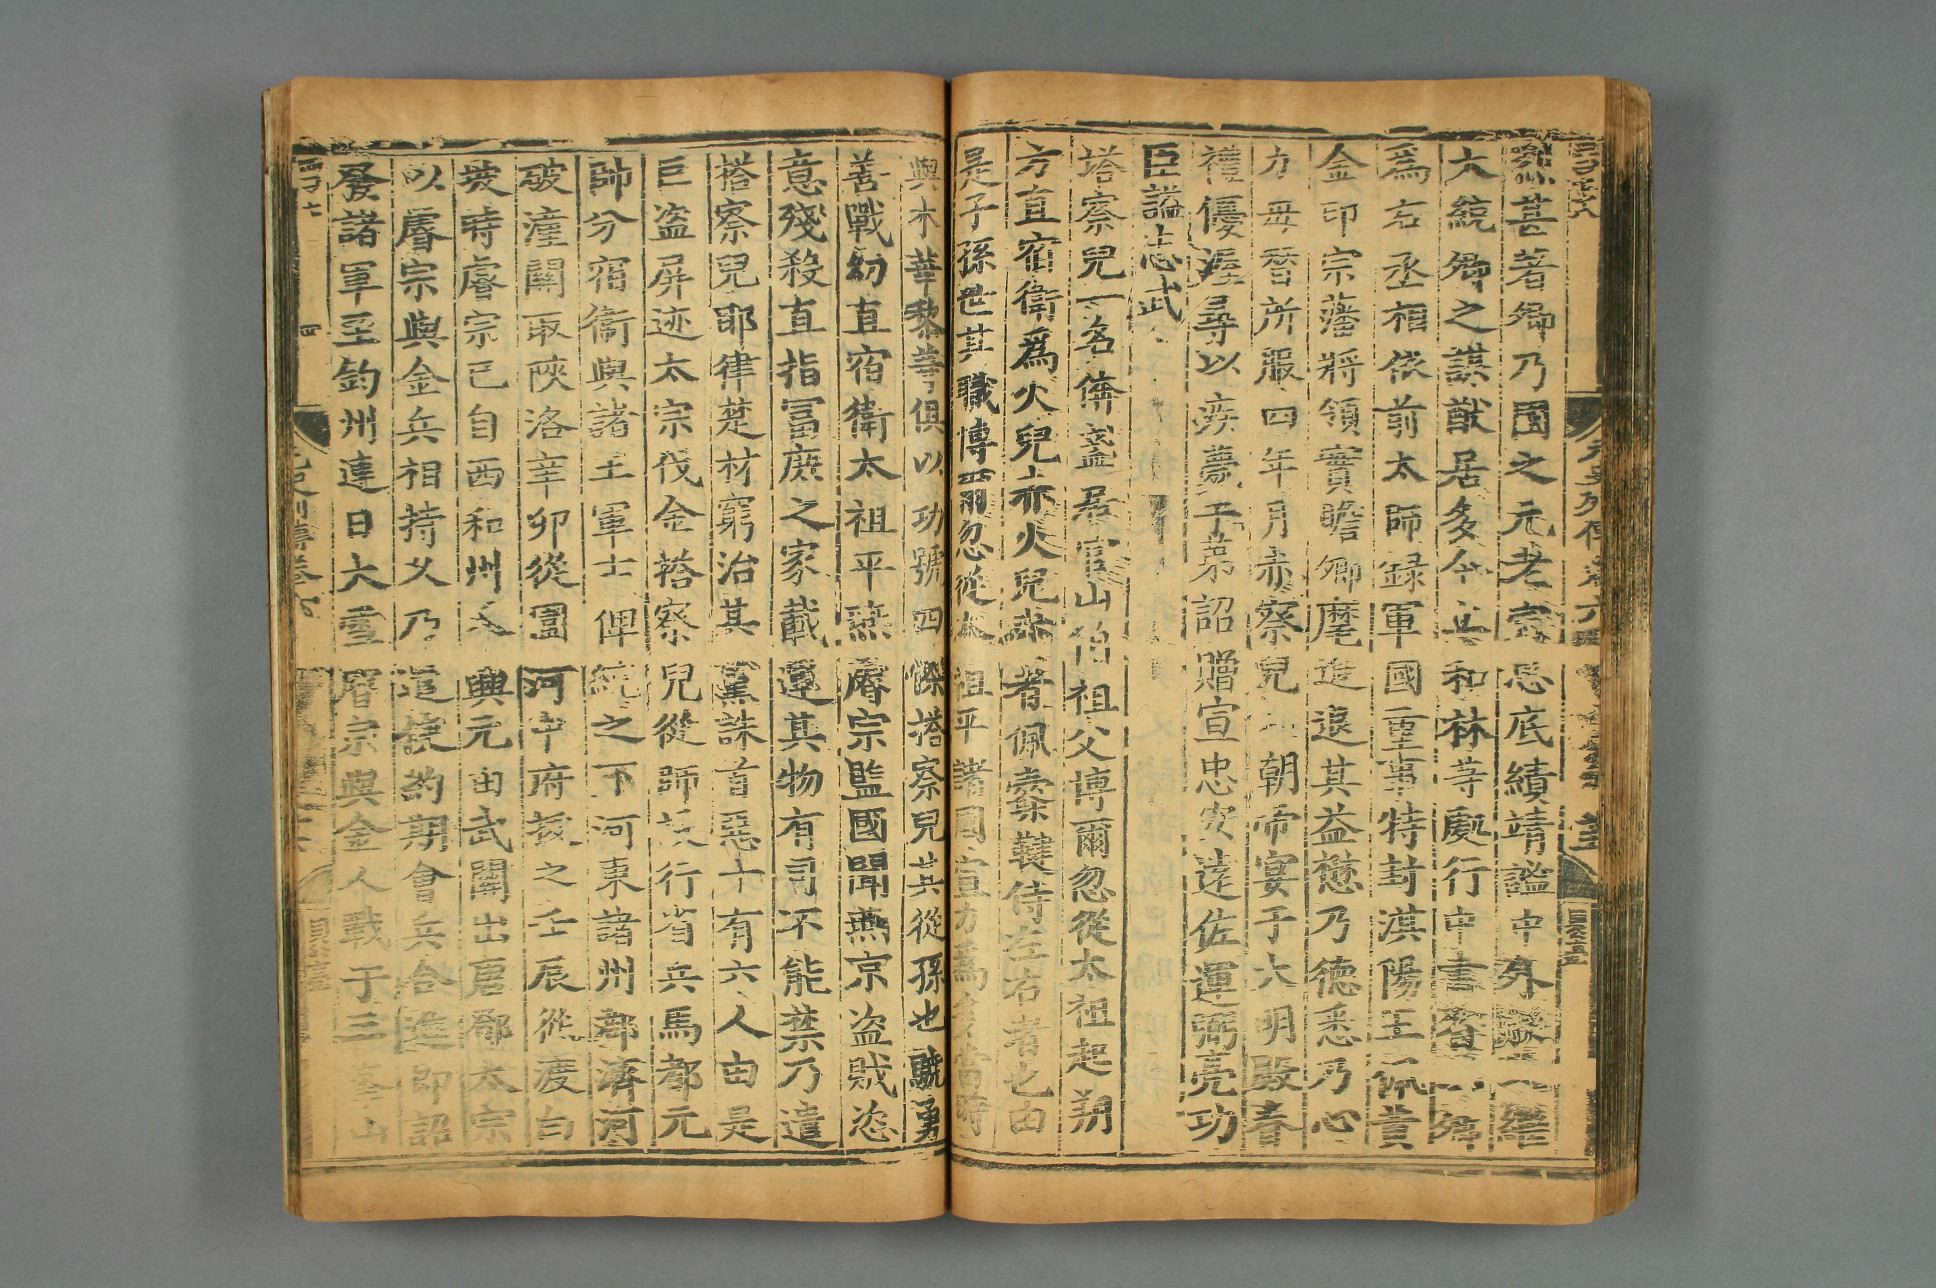 然若著卿乃國之元老寔 底績靖謐中外
大統卿之謀猷居多今 和林等處行中書省
爲右丞相依前太師錄軍國重事特封淇陽王佩黃
金印宗藩將領實瞻卿麾進退其益懋乃德悉乃心
力毋替所服四年月赤察兒 朝帝宴于大明殿眷
禮優渥尋以疾薨于第詔贈宣忠安遠佐運弼亮功
臣謚忠武
塔察兒一名倴盞居官山伯祖父博爾忽從太祖起朔
方直宿衛爲火兒赤火兒赤者佩櫜鞬侍左右者也由
是子孫世其職博爾忽從太祖平諸國宣力爲多當時
與木華黎等俱以功號四傑塔察兒其從孫也驍勇
善戰幼直宿衛太祖平燕睿宗監國聞燕京盜賊恣
意殘殺直指富庶之家載運其物有司不能禁乃遣
搭察兒耶律楚材窮治其黨誅首惡十有六人由是
巨盜屏迹太宗伐金搭察兒從師以行省兵馬都元
帥分宿衛與諸王軍士俾統之下河東諸州郡濟河
破潼關取陝洛辛卯從圍河中府拔之壬辰從渡白
坡時睿宗已自西和州 興元由武關出唐鄧太宗
以睿宗與金兵相持久乃遣 約期會兵合進即詔
發諸軍至鈞州連日大雪睿宗與金人戰于三峯山
元史列傳卷六